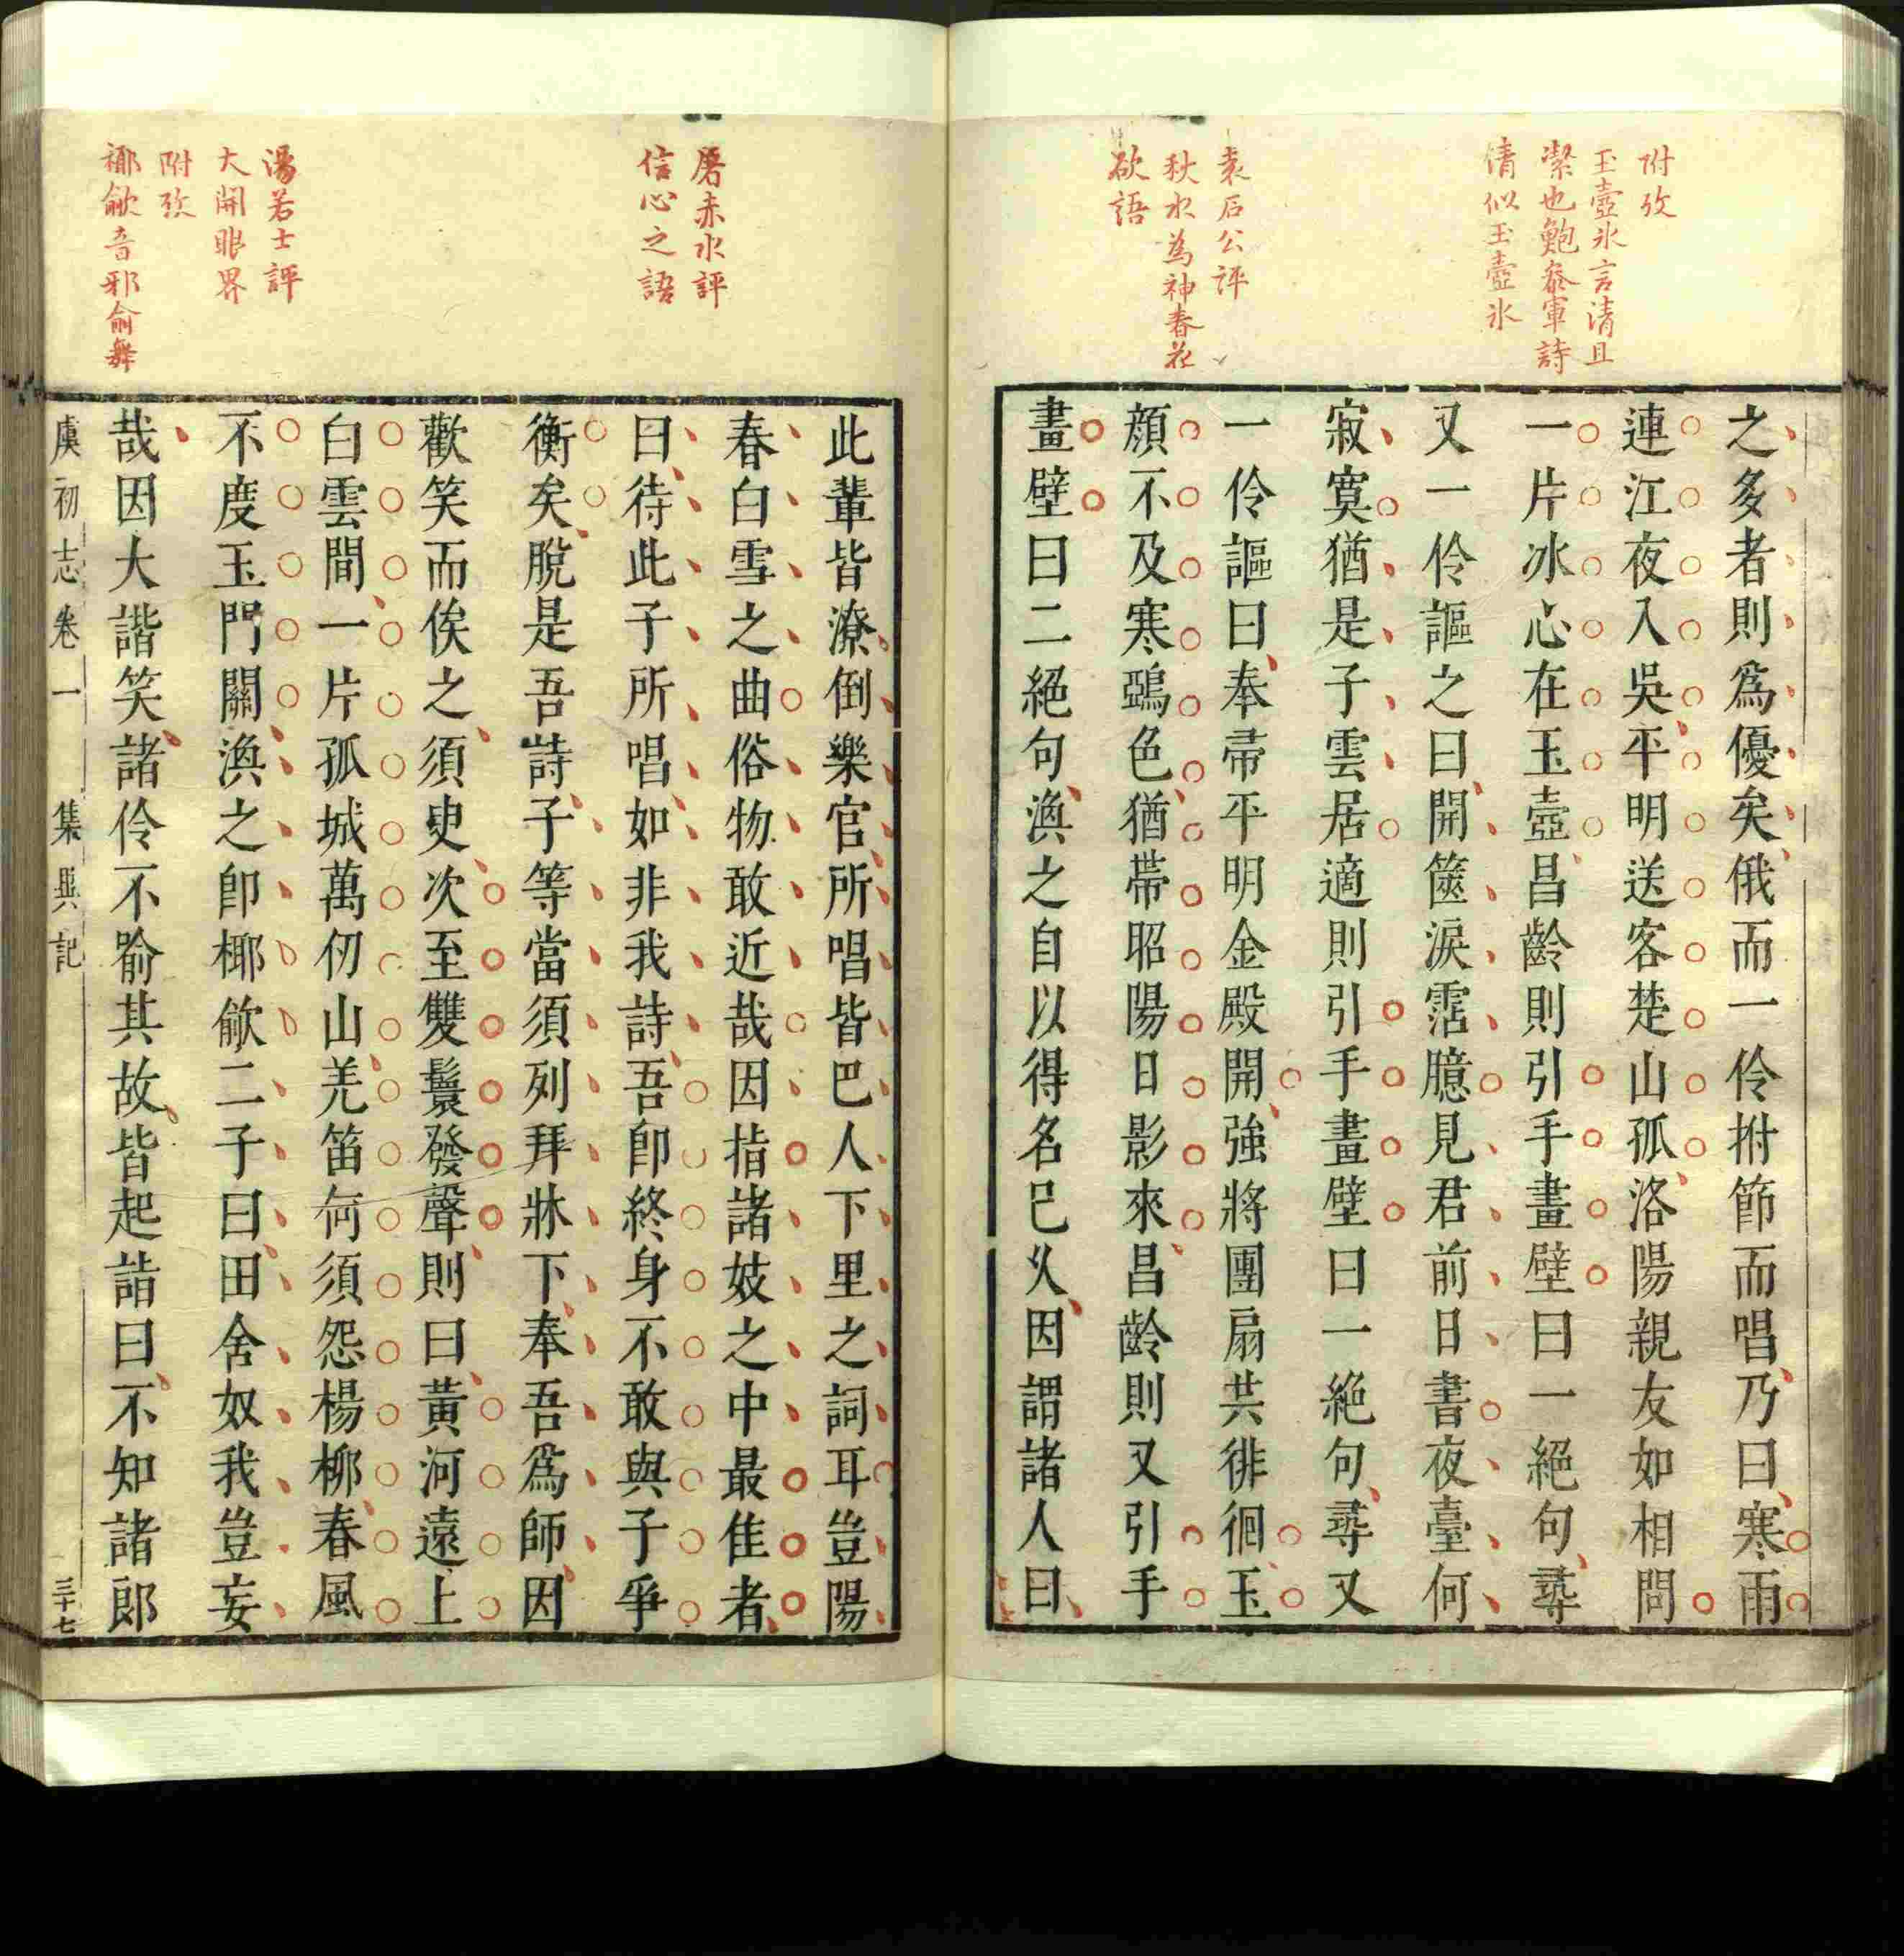 附攷
玉壺氷言清且
潔也鮑叅軍詩
清似玉壺氷
袁石公評
秋水為神春花
欲語
之多者則爲優矣俄而一伶拊節而唱乃曰寒雨
連江夜入吳平明送客楚山孤洛陽親友如相問
一片冰心在玉壺昌齡則引手畫壁曰一絕句尋
又一伶謳之曰開篋淚霑臆見君前日書夜臺何
寂寞猶是子雲居適則引手畫壁曰一絕句尋又
一伶謳曰奉帚平明金殿開強將團扇共徘徊玉
顏不及寒鵶色猶帶昭陽日影來昌齡則又引手
畫壁曰二絕句渙之自以得名已久因謂諸人曰
屠赤水評
信心之語
湯若士評
大開眼界
附攷
揶歈音邪俞舞
此輩皆潦倒樂官所唱皆巴人下里之詞耳豈陽
春白雪之曲俗物敢近哉因指諸妓之中最佳者
曰待此子所唱如非我詩吾卽終身不敢與子爭
衡矣脫是吾詩子等當須列拜牀下奉吾爲師因
歡笑而俟之須臾次至雙鬟發聲則曰黃河遠上
白雲間一片孤城萬仞山羌笛何須怨楊柳春風
不度玉門關渙之卽揶歈二子曰田舍奴我豈妄
哉因大諧笑諸伶不喻其故皆起詣曰不知諸郎
虞初志卷一 集異記 三十七